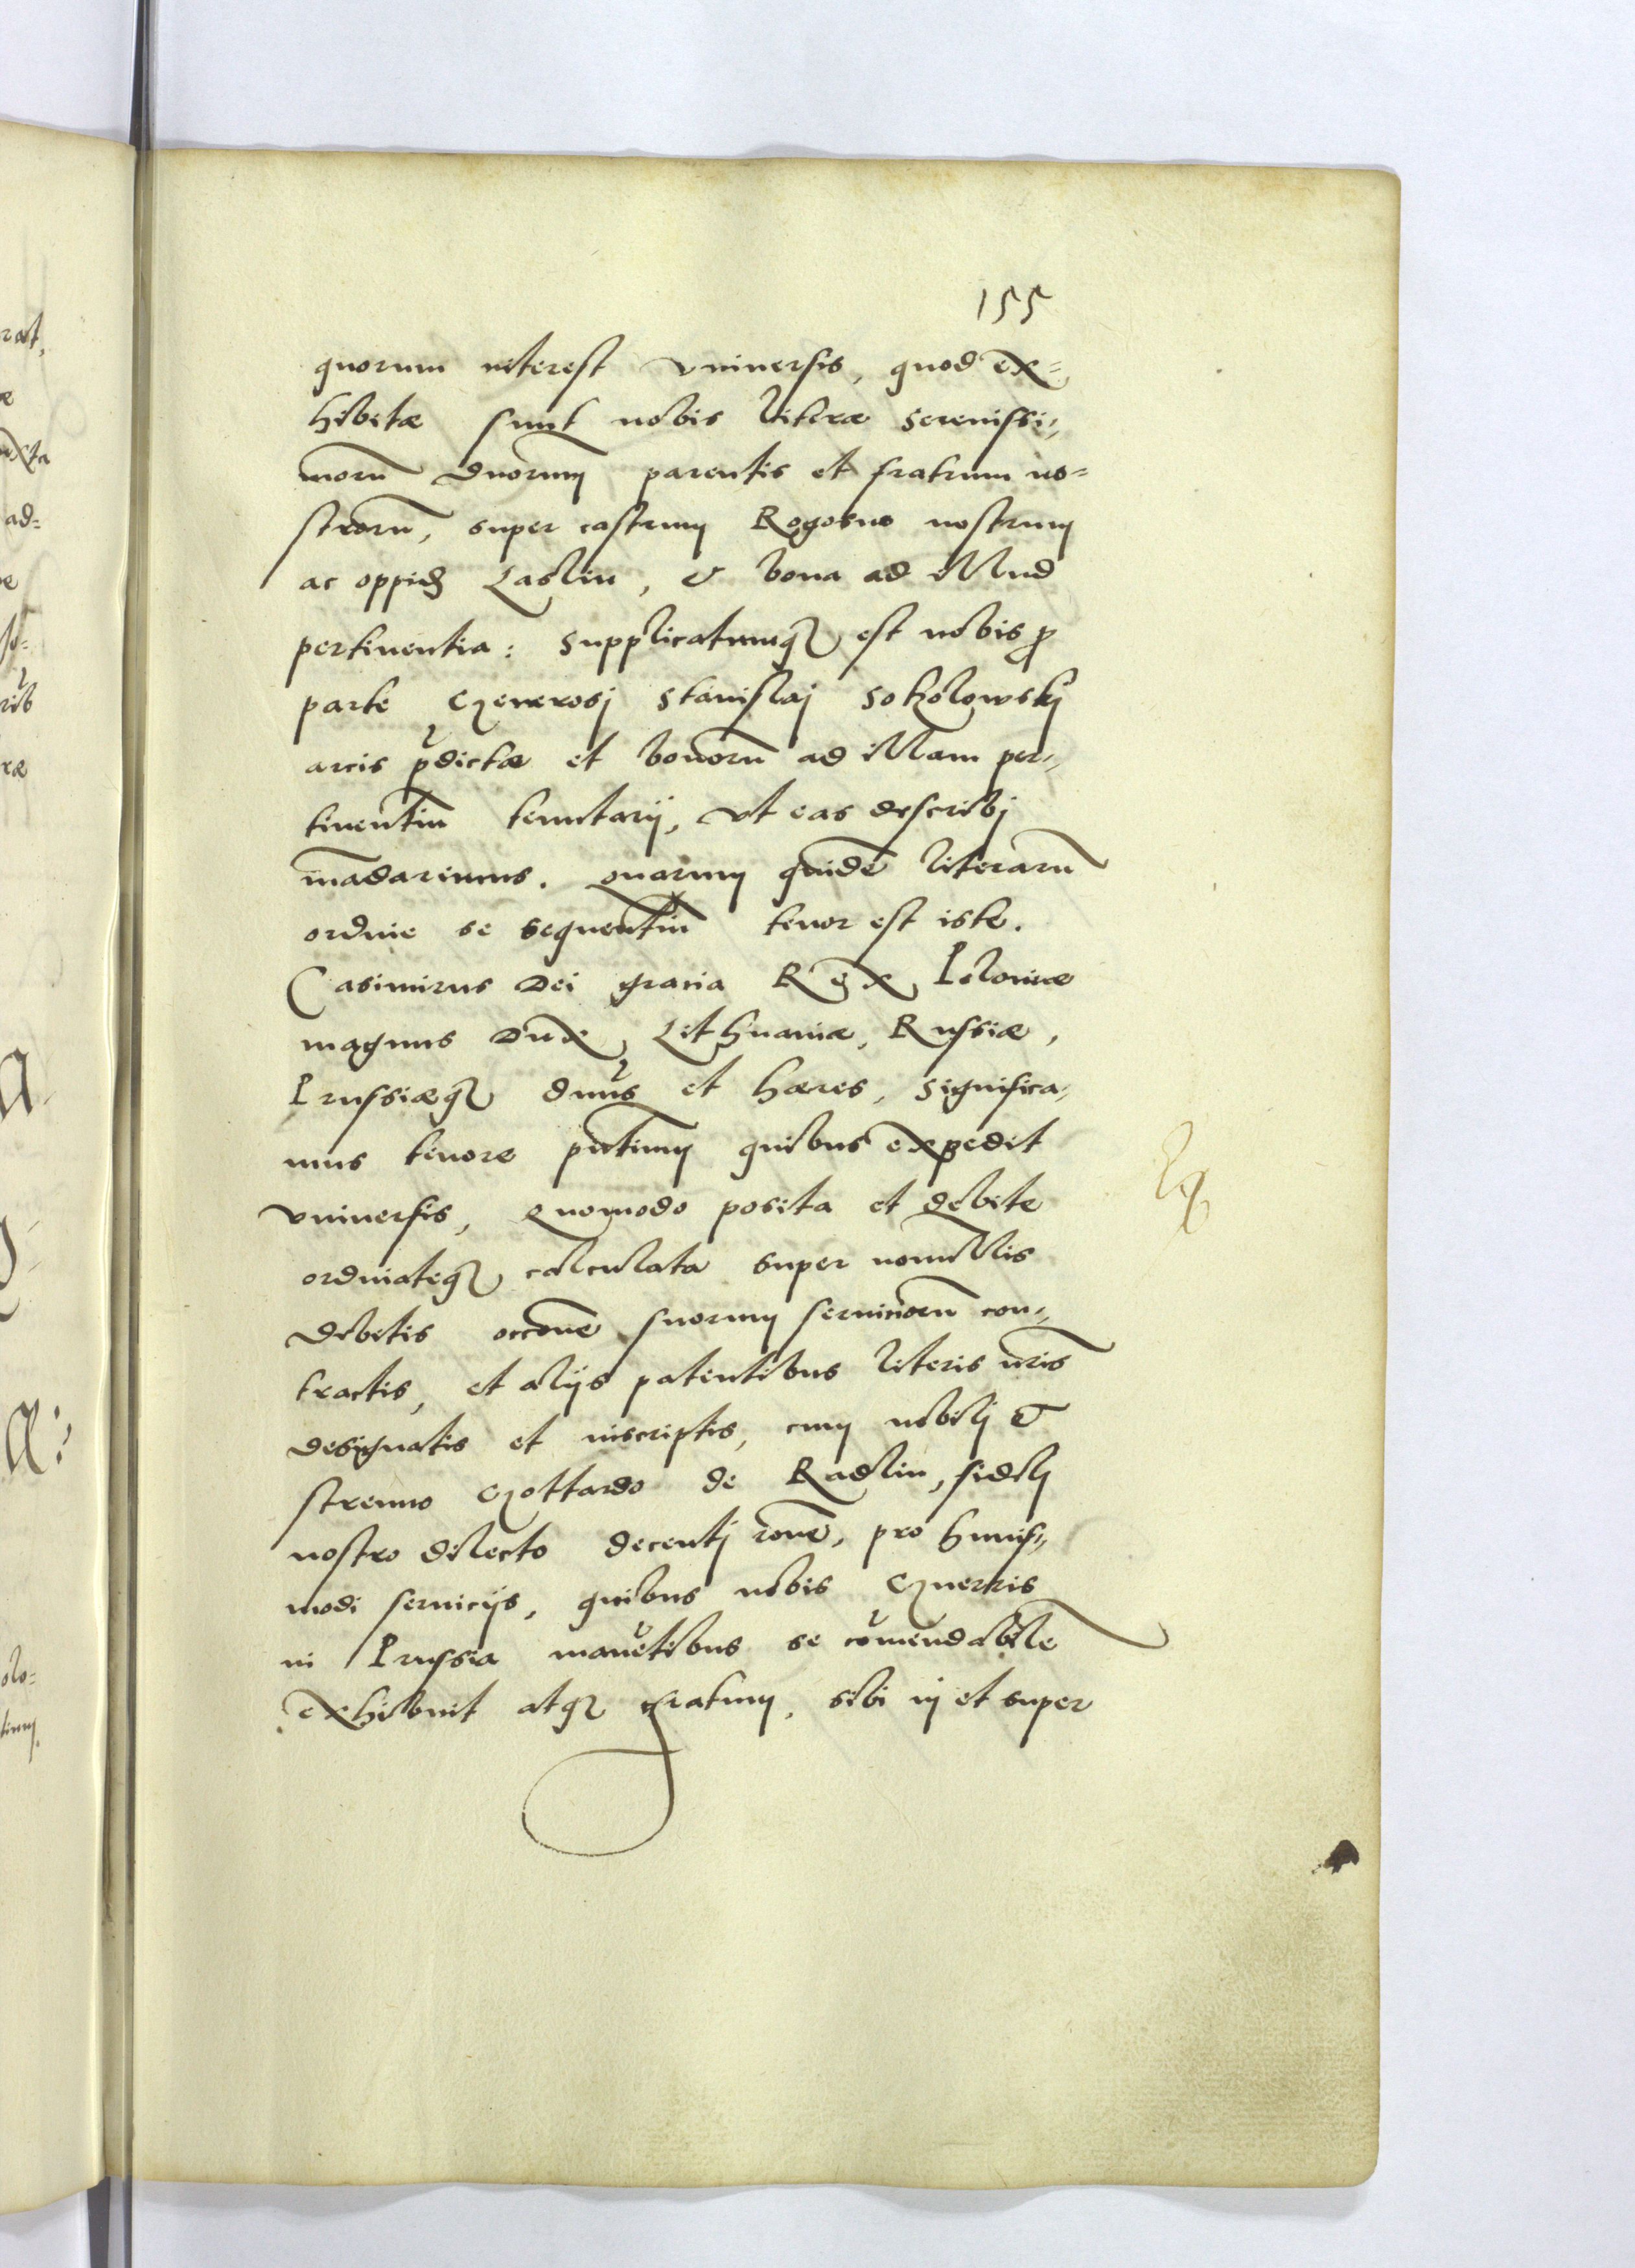 155
quorum interest vniuersis, quod ex=
hibitæ sunt nobis literæ Serenissi=
morū Dnorum parentis et fratrum no=
strorū, super castrum Rogosno nostrum
ac oppid Laslin, & bona ad illud
pertinentia: Supplicatumq₃ est nobis ꝓ
parte Generosj Stanislaj Sokolowskj
arcis pdictæ et bonorū ad illam per=
tinentiū tenutarij, vt eas describj
mādaremus. Quarum quidē literarū
ordine se sequentiū tenor est iste.
Casimirus Dei gracia Rex Poloniæ
magnus Dux Lithuaniæ, Russiæ,
Prussiæq₃ dnus et hæres, significa=
mus tenore pntium quibus expedit
vniuersis, Quomodo posita et debite
ordinateq₃ calculata super nonnullis
debitis occōne suorum seruiciorū con=
tractis, et alijs patentibus literis nr̄is
designatis et inscriptis, cum nobilj &
strenuo Gottardo de Radlin, fidelj
nostro dilecto decentj rōne, pro huius=
modi seruicijs, quibus nobis Guerris
in Prussia mauētibus se cōmendabile
exhibuit atq₃ gratum, sibi in et super